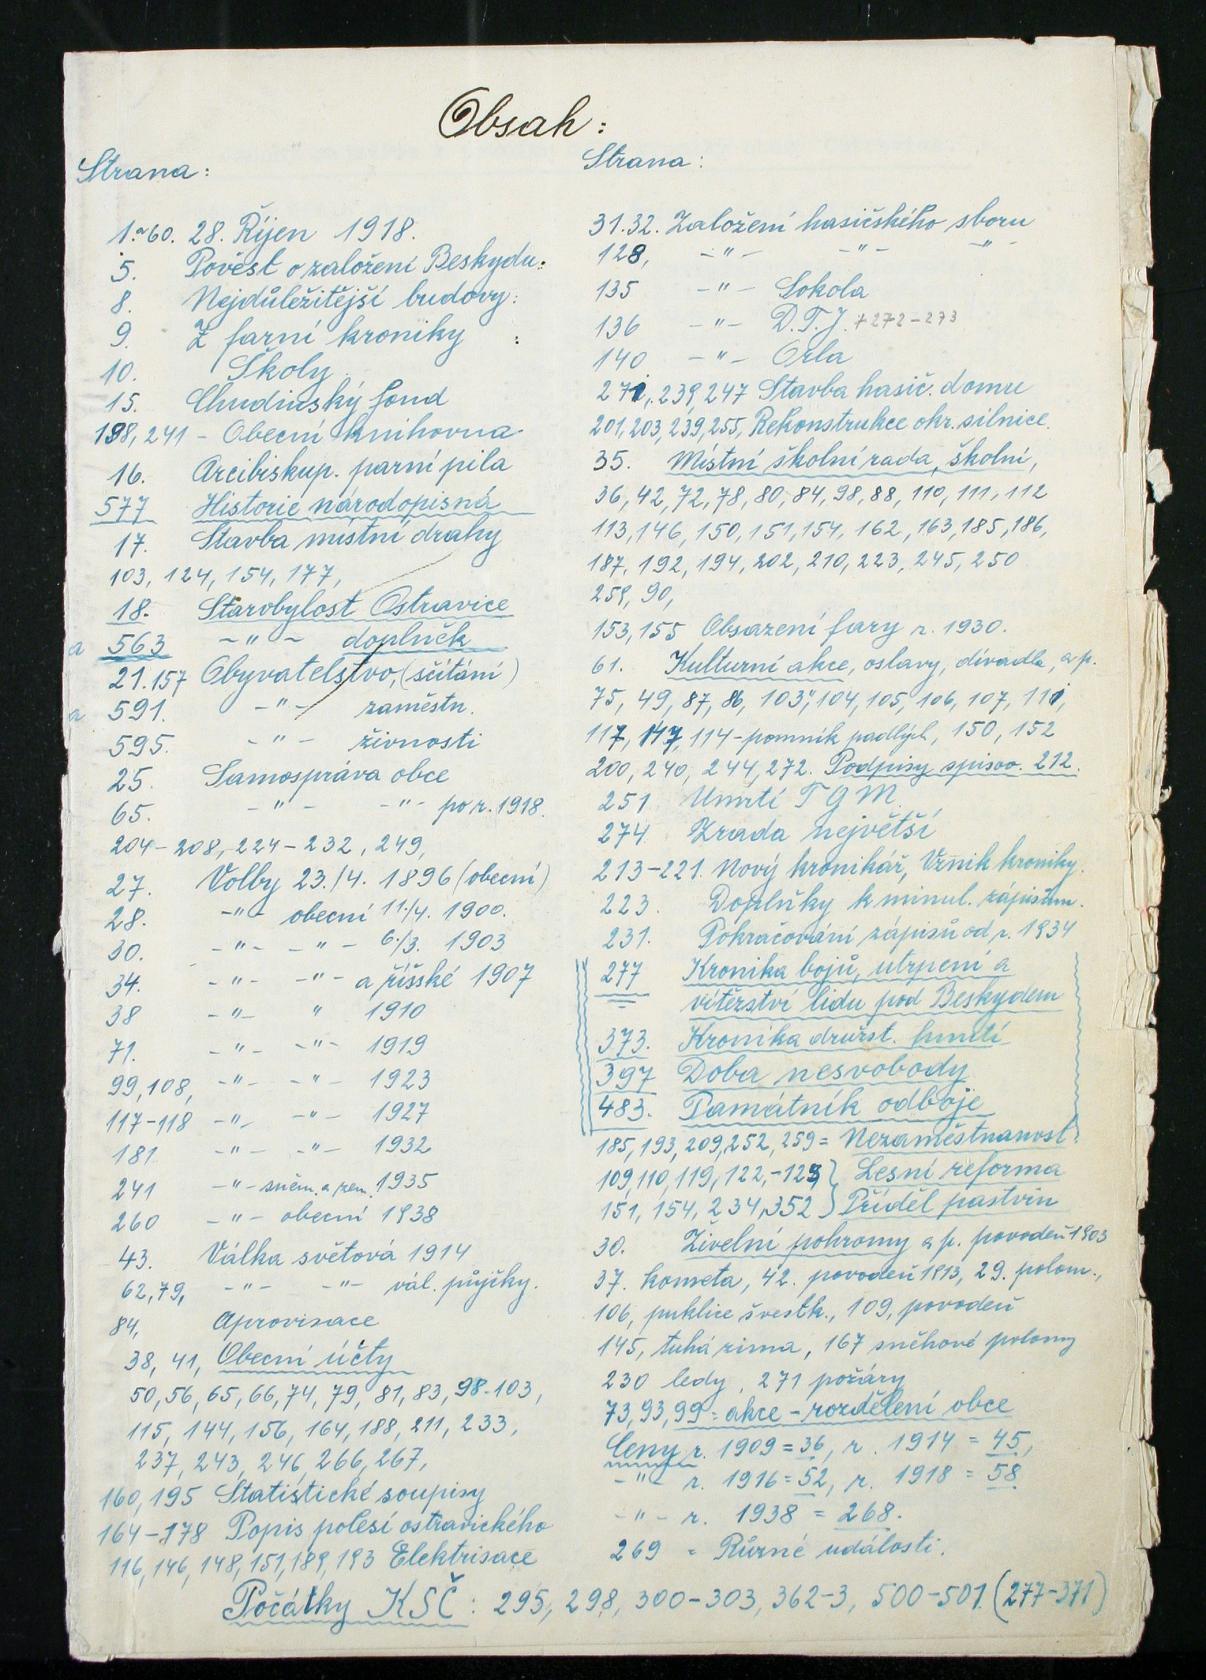 Obsah:
Strana:
1.a 60. 28. Říjen 1918.
5. Pověst o založení Beskydu.
8. Nejdůležitější budovy:
9. Z farní kroniky :
10. Školy
15. Chudinský fond
198, 241 - Obecní knihovna
16. Arcibiskup. parní pila
577 Historie národopisná
17. Stavba místní dráhy
103, 124, 154, 177,
18. Starobylost Ostravice
a 563 -"- doplněk
21. 157 Obyvatelstvo, (sčítání)
a 591. -"- zaměstn.
595. -"- živnosti
25. Samospráva obce
65. -"- -"- po r. 1918.
204-208, 224-232, 249,
27. Volby 23./4. 1896 (obecní)
28. -"- obecní 11./4. 1900.
30. -"- -"- 6./3. 1903
34. -"- -"- a říšské 1907
38 -"- " 1910
71. -"- -"- 1919
99, 108, -"- -"- 1923
117-118 -"- -"- 1927
181 -"- -"- 1932
241 -"- sněm. a zem. 1935
260 -"- obecní 1938
43. Válka světová 1914
62, 79, -"- -"- vál. půjčky.
84, Aprovisace
38, 41, Obecní účty
50, 56, 65, 66, 74, 79, 81, 83, 98-103,
115, 144, 156, 164, 188, 211, 233,
237, 243, 246, 266, 267,
160, 195 Statistické soupisy
164-178 Popis polesí ostravického
116, 146, 148, 151, 189, 193 Elektrisace
Strana:
31. 32. Založení hasičského sboru
128, -"- -"- -"-
135 -"- Sokola
136 -"- D.T.J. + 272-273
140 -"- Orla
271, 239, 247 Stavba hasič. domu
201, 203, 239, 255, Rekonstrukce okr. silnice.
35. Místní školní rada, školní,
36, 42, 72, 78, 80, 84, 98, 88, 110, 111, 112
113, 146, 150, 151, 154, 162, 163, 185, 186,
187, 192, 194, 202, 210, 223, 245, 250
259, 90,
153, 155 Obsazení fary r. 1930.
61. Kulturní akce, oslavy, divadla, a p.
75, 49, 87, 86, 103, 104, 105, 106, 107, 111,
117, 147, 114-pomník padlých, 150, 152
200, 240, 244, 272. Podpisy spisov. 212.
251 Úmrtí T G M
274. Zrada největší
213-221. Nový kronikář, Vznik kroniky.
223. Doplňky k minul. zápisům.
231. Pokračování zápisů od r. 1934
277 Kronika bojů, utrpení a
vítězství lidu pod Beskydem
373. Kronika družst. hnutí
397 Doba nesvobody
483. Památník odboje
185, 193, 209, 252, 259 = Nezaměstnanost
109, 110, 119, 122,-123 } Lesní reforma
151, 154, 234, 352 } Příděl pastvin
30. Živelní pohromy a p. povodeň 1903
37. kometa, 42. povodeň 1913, 29. polom.,
106, puklice švestk., 109, povodeň
145, tuhá zima, 167 sněhové polomy
230 ledy, 271 požáry
73, 93, 99 = akce - rozdělení obce
Ceny r. 1909 = 36, r. 1914 = 45,
-"- r. 1916 = 52, r. 1918 = 58
-"- r. 1938 = 268.
269 = Různé události.
Počátky KSČ: 295, 298, 300-303, 362-3, 500-501. (277-371)